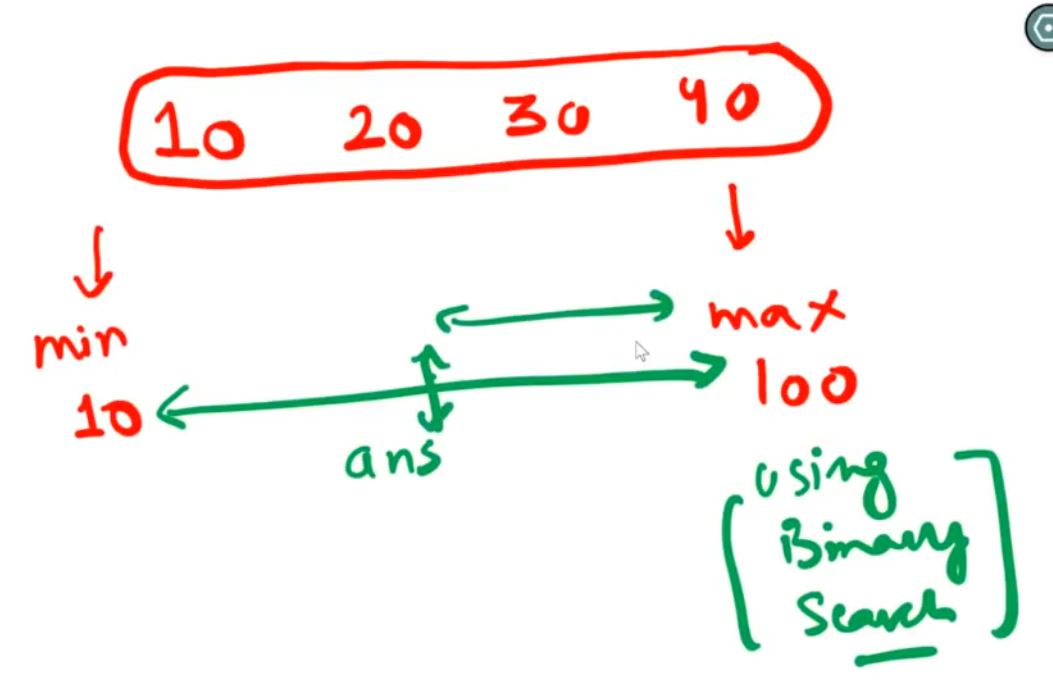 10 20 30 40
min
max
10
100
ans
using
Binary
Search